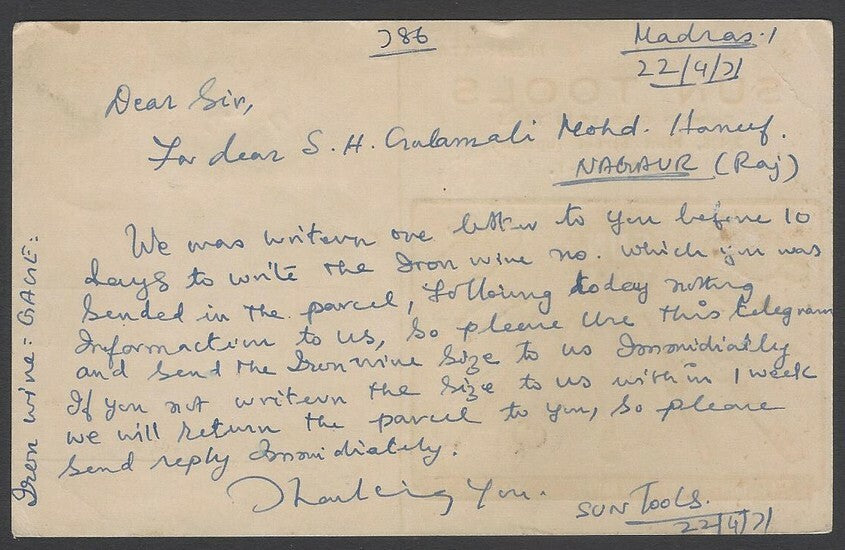 786
Madras.1
22/4/71
Dear Sir,
For dear S. H. Gulamali Mohd. Haneef.
NAGAUR (Raj)
We was writern one letter to you before 10
days to write the Iron wire no. which you was
sended in the parcel, following today nothing
Information to us, So please Use this telegram
and send the Iron wire size to us Immidiatlly
If you not writern the size to us within 1 week
we will return the parcel to you, So please
send reply Immidiatly.
Thanking You.
SUN TOOLS.
22/4/71
Iron wire = GAUE:
SUN TOOLS